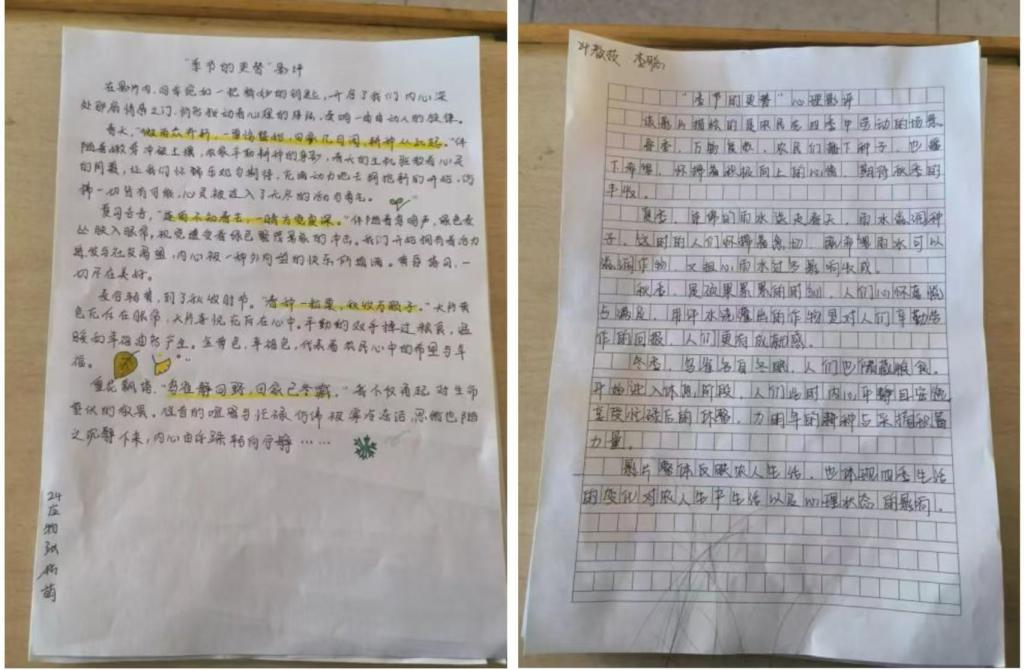 "季节的更替"影评
在影片内,四季宛如一把神妙的钥匙,开启了我们内心深
处那扇情感之门,仿若拨动着心理的琴弦,奏响一曲曲动人的旋律。
春天,"微雨众卉新,一雷惊蛰始,田家几日闲,耕种从此起。"伴
随着嫩芽冲破土壤,农家辛勤耕种的身影,春天的生机张动着心灵
的同囊,让我们怀揣乐观与期待,充满动力地去拥抱新的开始,仿
佛一切皆有可能,心灵被注入了无尽的活力与勇气。
夏日杳杳,"连雨不知春去,一晴方觉夏深。"伴随着鸟鸣声,绿色麦
丛映入眼帘,视觉遭受着绿色繁茂景象的冲击。我们开始拥有着活力
迸发与社交渴望,内心被一种外向型的快乐所填满。黄昏落日,一
切尽在美好。
麦谷轻黄,到了秋收时节。"春种一粒粟,秋收万颗子。"大片黄
色充斥在眼帘,大片喜悦充斥在心中。辛勤的双手捧过粮食,温
暖的幸福油然产生。金黄色,幸福色,代表着农民心中的希望与幸
福。
雪花飘落,"岁在静回野,田家已冬藏。"
蛰伏的敬畏。往昔的喧嚣与忙碌仿佛被寒冷冻结,思绪也随
之沉静下来,内心由乐躁转向宁静……
24应物张
萌
24教技 李聪
"季节的更替"心理影评
该影片描绘的是农民在四季中劳动的场景。
春季,万物复苏,农民们播下种子,也播
下希望,怀揣着积极向上的心情,期待秋季的
丰收。
夏季,连绵的雨水送走春天,雨水滋润种
子,这时的人们怀揣着急切,既希望雨水可以
滋润作物,又担心雨水过多影响收成。
秋季,是硕果累累的时刻,人们心怀喜悦
与满足,用汗水浇灌出的作物是对人们辛勤劳
作的回报,人们更有成就感。
冬季,鸟雀各有冬眠,人们也储藏粮食。
开始进入休息阶段,人们此时内心平静且安逸
享受忙碌后的休憩,为明年的耕种与采摘积蓄
力量。
影片整体反映农人生活,也体现四季生活
的变化对农人生产生活以及心理状态的影响。